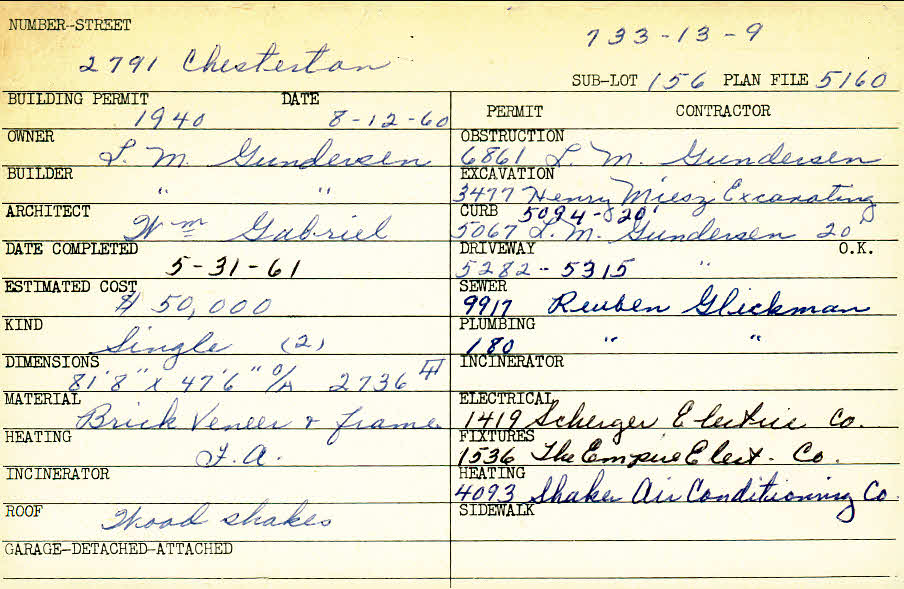 NUMBER--STREET
733-13-9
2791 Chesterton
SUB-LOT 156 PLAN FILE 5160
BUILDING PERMIT DATE
1940 8-12-60
OWNER
L. M. Gundersen
BUILDER
" "
ARCHITECT
Wm Gabriel
DATE COMPLETED
5-31-61
ESTIMATED COST
$ 50,000
KIND
Single (2)
DIMENSIONS
81'8" x 47'6" O/A 2736
MATERIAL
Brick Veneer & frame
HEATING
F.A.
INCINERATOR
ROOF Wood shakes
GARAGE-DETACHED-ATTACHED
PERMIT CONTRACTOR
OBSTRUCTION
6861 L. M. Gundersen
EXCAVATION
3477 Henry Miesz Excavating
CURB 5094-20'
5067 L. M. Gundersen 20'
DRIVEWAY O.K.
5282-5315 "
SEWER
9917 Reuben Glickman
PLUMBING
180 " "
INCINERATOR
ELECTRICAL
1419 Scherger Electric Co.
FIXTURES
1536 The Empire Elect. Co.
HEATING
4093 Shaker Air Conditioning Co
SIDEWALK